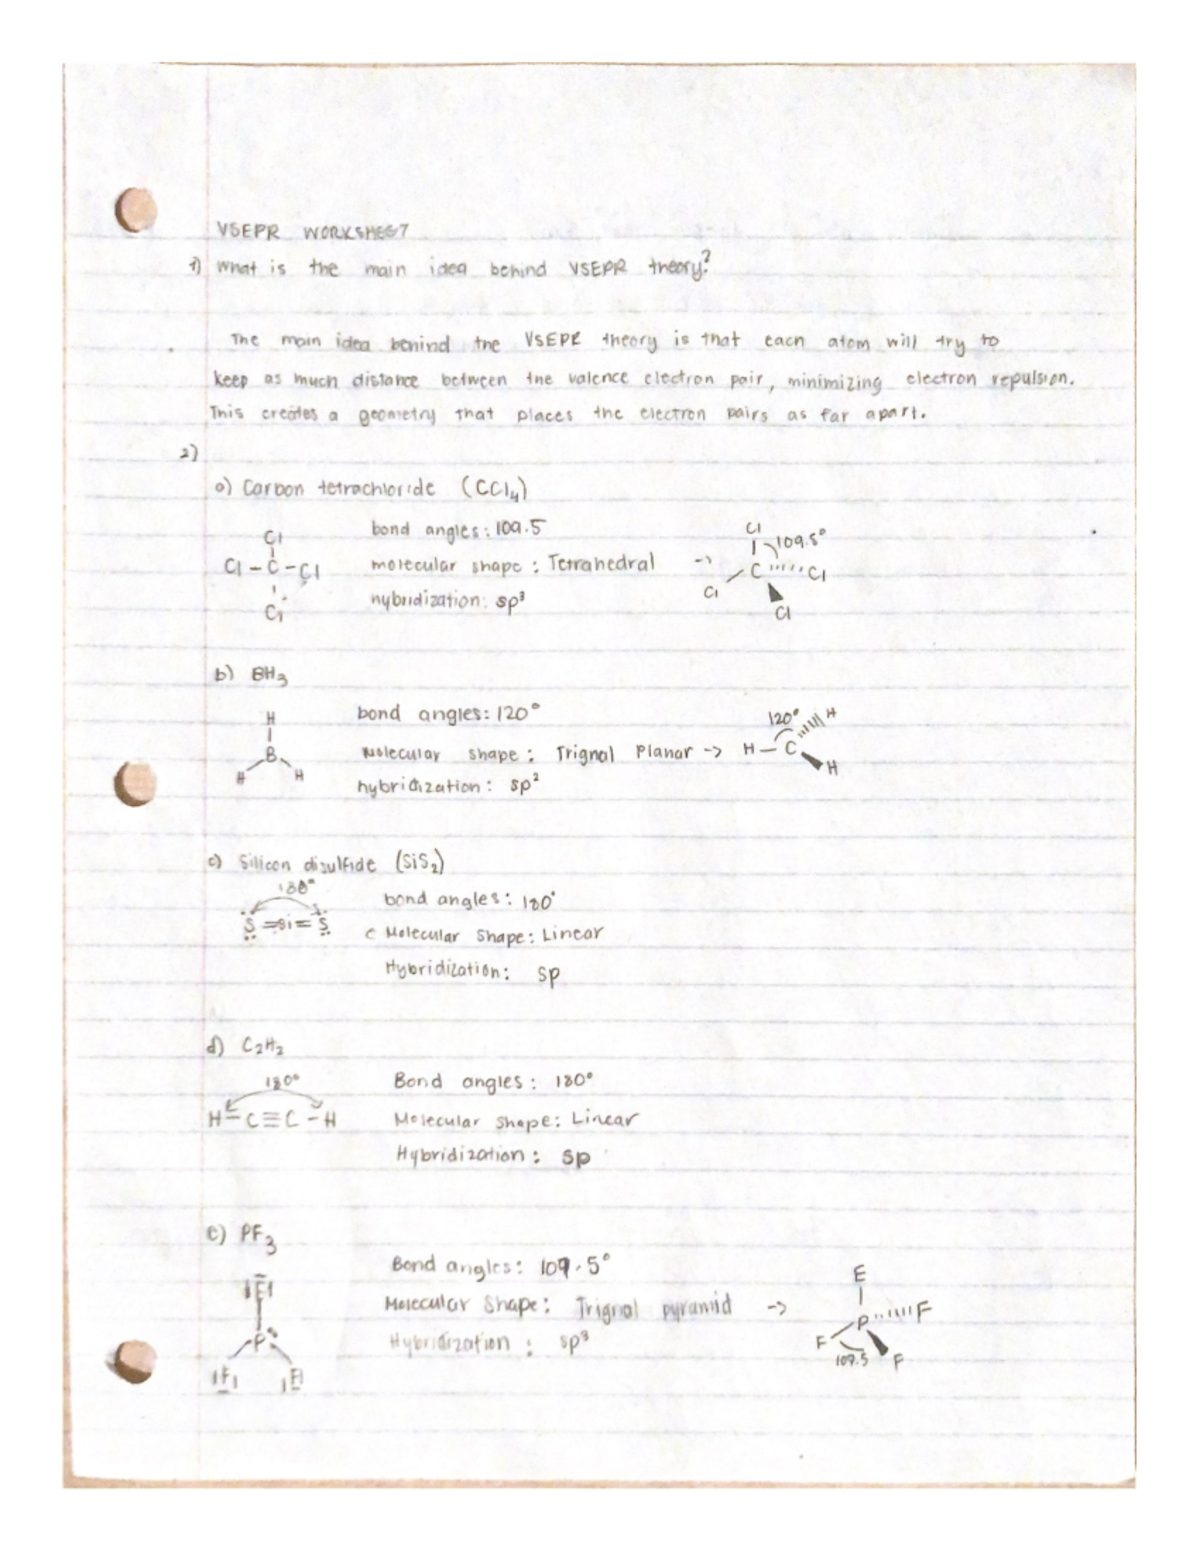 VSEPR WORKSHEET
1) What is the main idea behind VSEPR theory?
The main idea behind the VSEPR theory is that each atom will try to
keep as much distance between the valence electron pair, minimizing electron repulsion.
This creates a geometry that places the electron pairs as far apart.
2)
a) Carbon tetrachloride (CCl₄)
bond angles: 109.5
Cl
Cl – C – Cl
Cl
molecular shape: Tetrahedral ->
hybridization: sp³
Cl
109.5°
C Cl
Cl
Cl
b) BH₃
bond angles: 120°
H
B
H H
Molecular shape: Trignal Planar ->
hybridization: sp²
120° H
H – C
H
c) Silicon disulfide (SiS₂)
180°
S = Si = S
bond angles: 180°
Molecular Shape: Linear
Hybridization: sp
d) C₂H₂
180°
H – C ≡ C – H
Bond angles: 180°
Molecular shape: Linear
Hybridization: sp
e) PF₃
F
P
F F
Bond angles: 109.5°
Molecular Shape: Trignal pyramid ->
Hybridization: sp³
E
P F
F
109.5 F